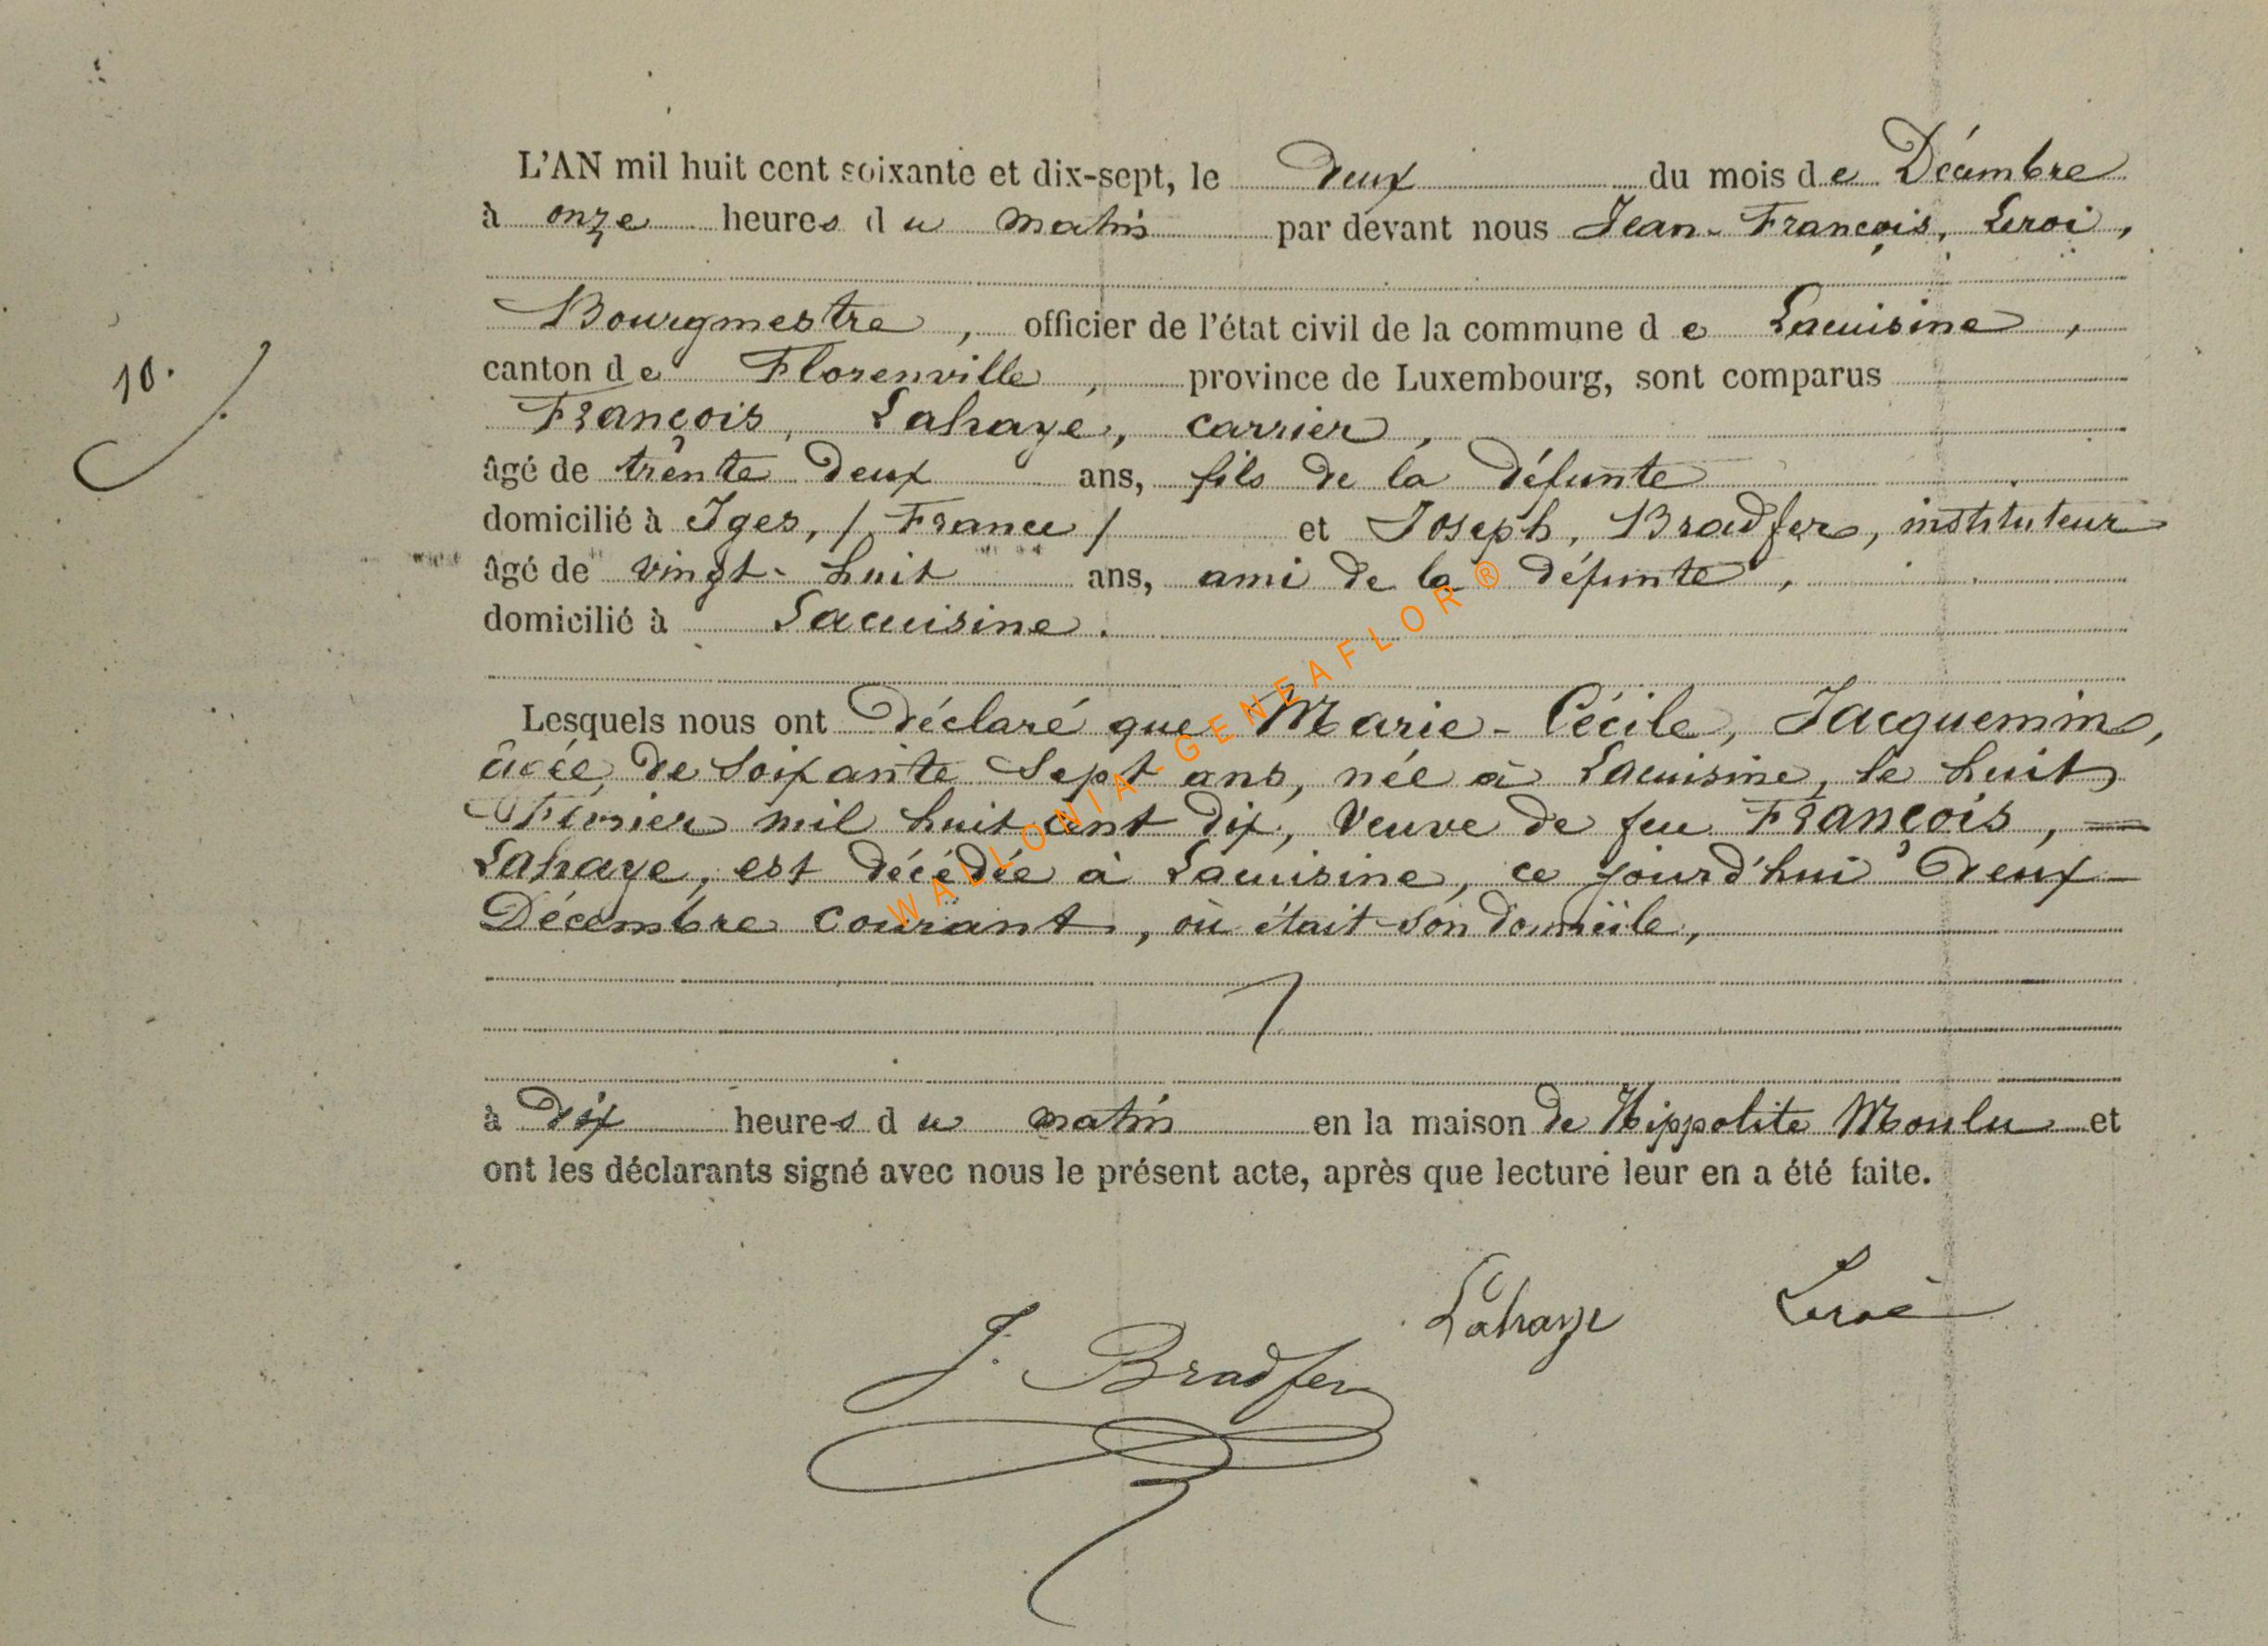 L'AN mil huit cent soixante et dix-sept, le Deux du mois de Décembre
à onze heures du matin par devant nous Jean-François, Leroi,
Bourgmestre, officier de l'état civil de la commune de Lacuisine,
10.
canton de Florenville, province de Luxembourg, sont comparus
François, Lahaye, carrier,
âgé de trente Deux ans, fils de la défunte
domicilié à Iges, / France / et Joseph, Bradfer, instituteur
âgé de vingt-huit ans, ami de la défunte,
domicilié à Lacuisine.
Lesquels nous ont Déclaré que Marie-Cécile, Jacquemin,
âgée de Soixante Sept ans, née à Lacuisine, le huit
Février mil huit cent Dix, Veuve de feu François,
Lahaye, est décédée à Lacuisine, ce jourd'hui Deux
Décembre courant, où était son domicile,
à Dix heures du matin en la maison de Hippolite Moulu et
ont les déclarants signé avec nous le présent acte, après que lecture leur en a été faite.
J. Bradfer Lahaye Leroi
WALLONIA-GENEAFLOR®